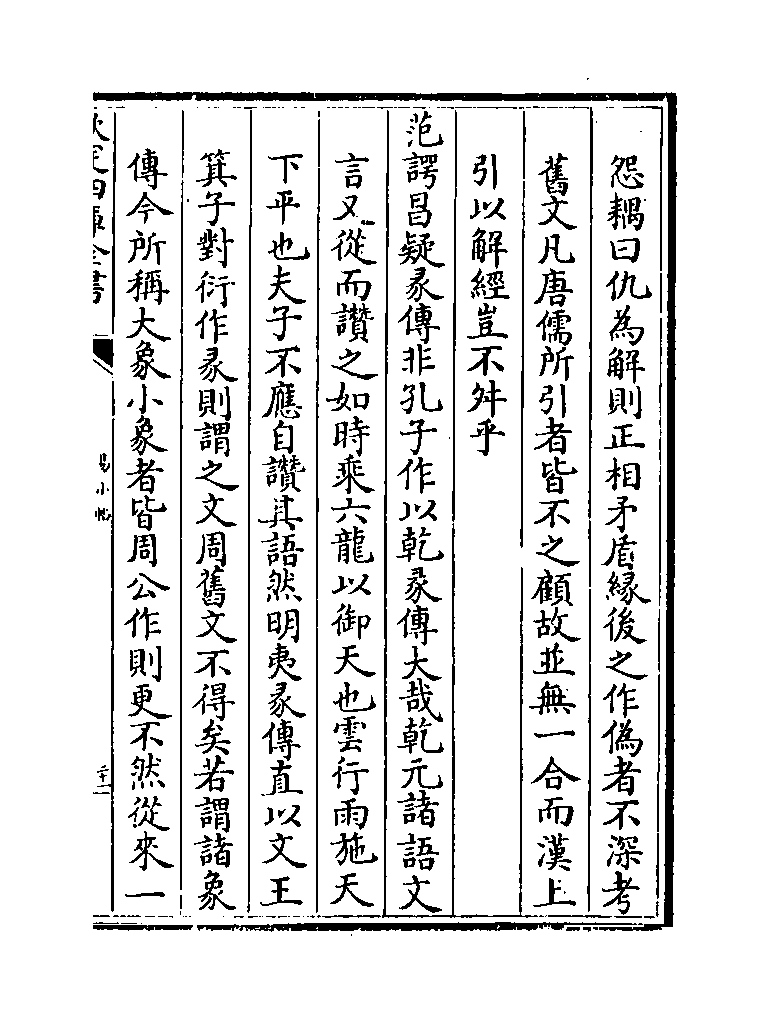 怨耦曰仇為解則正相矛盾緣後之作偽者不深考
舊文凡唐儒所引者皆不之顧故並無一合而漢上
引以解經豈不舛乎
范諤昌疑彖傳非孔子作以乾彖傳大哉乾元諸語文
言又從而讚之如時乘六龍以御天也雲行雨施天
下平也夫子不應自讚其語然明夷彖傳直以文王
箕子對衍作彖則謂之文周舊文不得矣若謂諸象
傳今所稱大象小象者皆周公作則更不然從來一
欽定四庫全書
易小帖